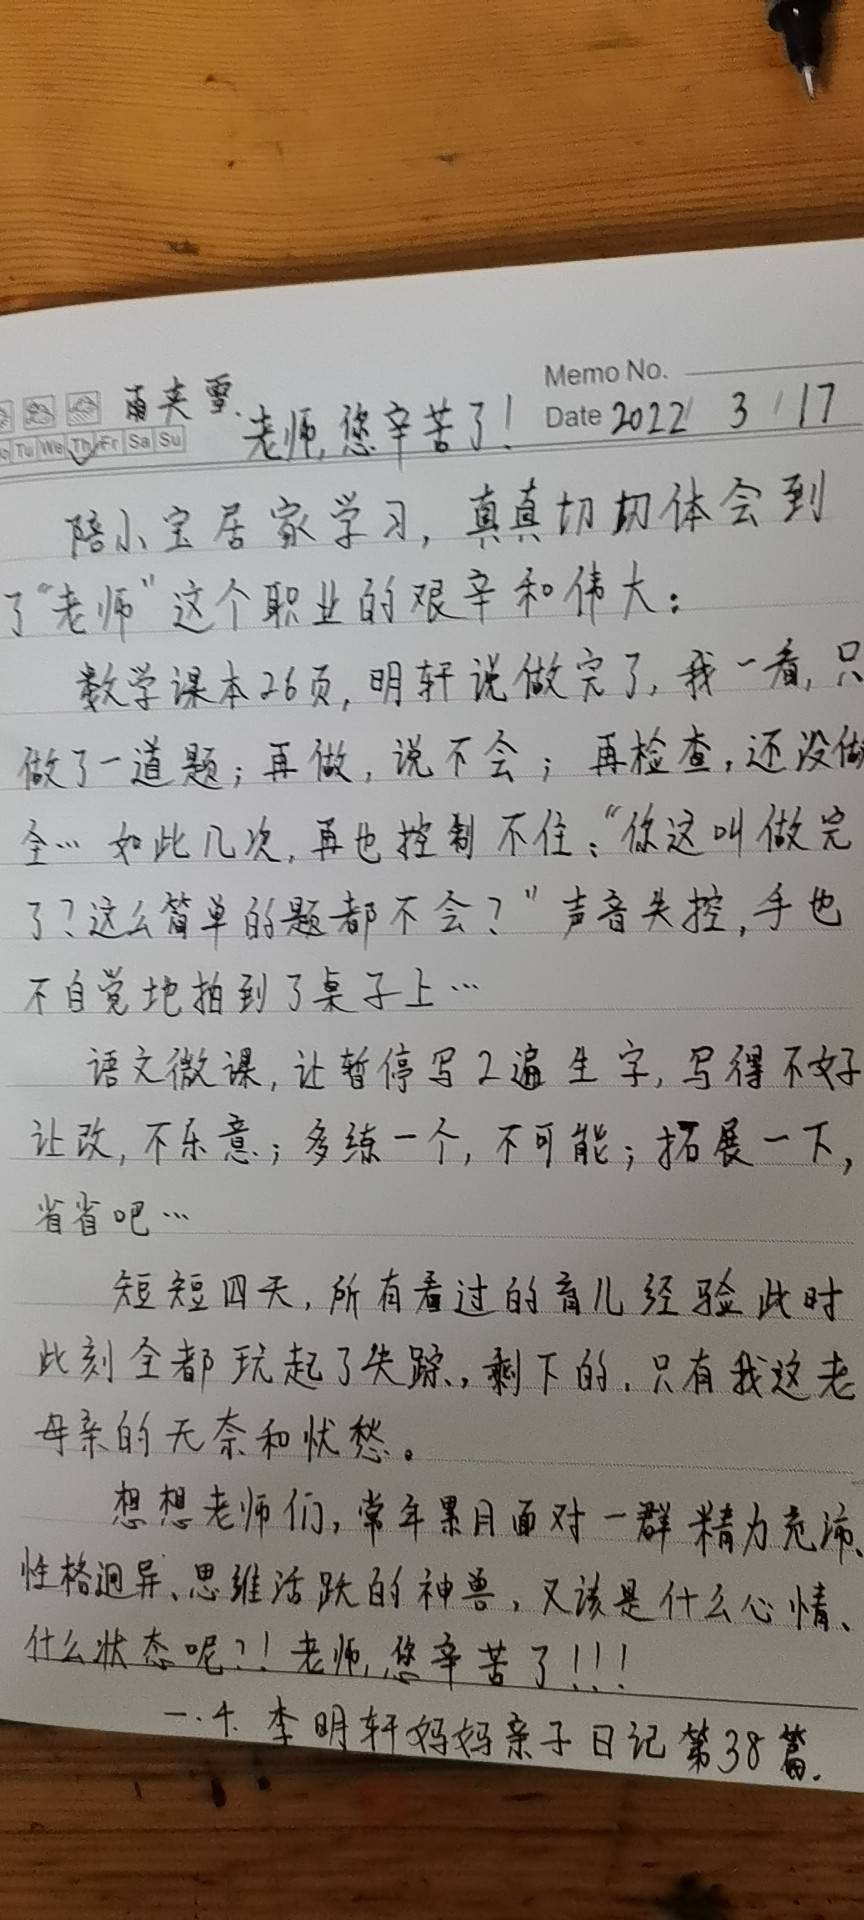 Memo No.
雨夹雪.
老师,您辛苦了!
Date 2022 3 17
Tu We Th Fr Sa Su
陪小宝居家学习,真真切切体会到
了“老师”这个职业的艰辛和伟大:
数学课本26页,明轩说做完了,我一看,只
做了一道题;再做,说不会;再检查,还没做
全… 如此几次,再也控制不住:“你这叫做完
了?这么简单的题都不会?”声音失控,手也
不自觉地拍到了桌子上…
语文微课,让暂停写2遍生字,写得不好
让改,不乐意;多练一个,不可能;拓展一下,
省省吧…
短短四天,所有看过的育儿经验此时
此刻全都玩起了失踪,剩下的,只有我这老
母亲的无奈和忧愁。
想想老师们,常年累月面对一群精力充沛、
性格迥异、思维活跃的神兽,又该是什么心情、
什么状态呢?!老师,您辛苦了!!!
一.4. 李明轩妈妈亲子日记第38篇.